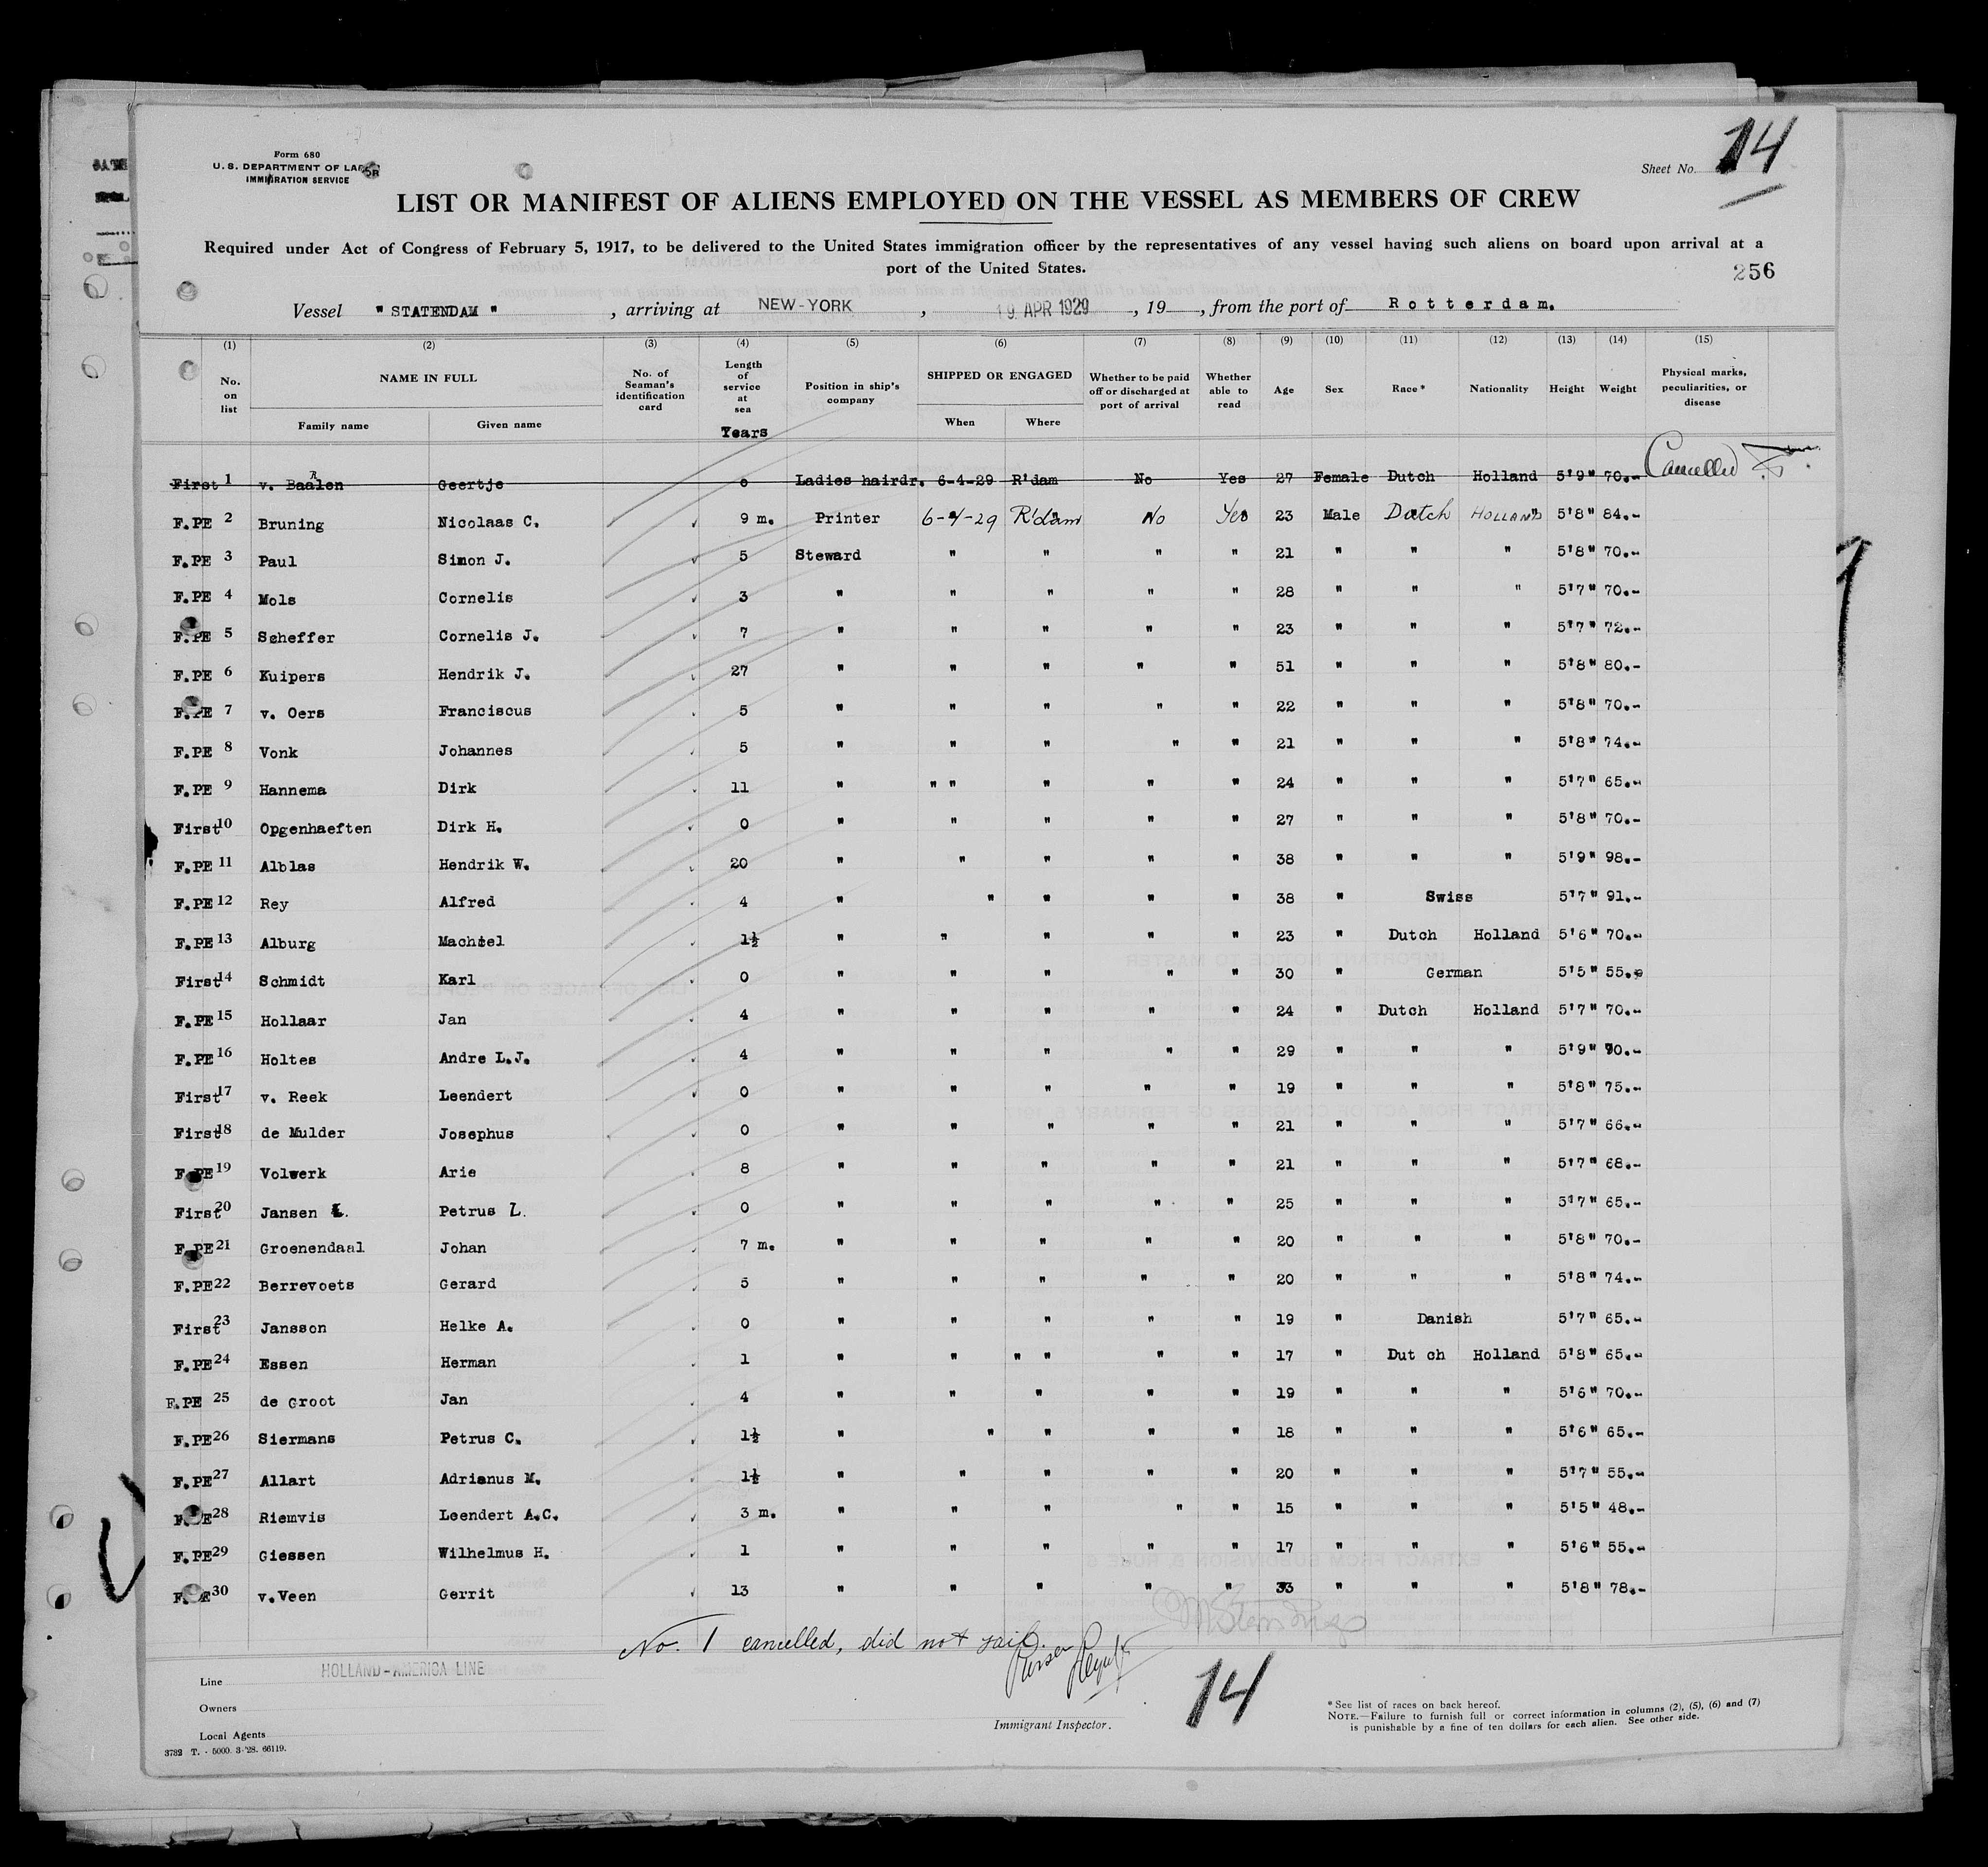 Form 680
U. S. DEPARTMENT OF LABOR
IMMIGRATION SERVICE
Sheet No. 14
LIST OR MANIFEST OF ALIENS EMPLOYED ON THE VESSEL AS MEMBERS OF CREW
Required under Act of Congress of February 5, 1917, to be delivered to the United States immigration officer by the representatives of any vessel having such aliens on board upon arrival at a
port of the United States.
256
Vessel "STATENDAM", arriving at NEW-YORK, 19 APR 1929, 19__, from the port of Rotterdam.
(1) (2) (3) (4) (5) (6) (7) (8) (9) (10) (11) (12) (13) (14) (15)
No. on list NAME IN FULL Family name Given name No. of Seaman's identification card Length of service at sea Years Position in ship's company SHIPPED OR ENGAGED When Where Whether to be paid off or discharged at port of arrival Whether able to read Age Sex Race* Nationality Height Weight Physical marks, peculiarities, or disease
First 1 v. Baalen Geertje 0 Ladies hairdr. 6-4-29 R'dam No Yes 27 Female Dutch Holland 5'9" 70.- Cancelled
F.PE 2 Bruning Nicolaas C. 9 m. Printer 6-4-29 R'dam No Yes 23 Male Dutch HOLLAND 5'8" 84.-
F.PE 3 Paul Simon J. 5 Steward " " " " 21 " " " 5'8" 70.-
F.PE 4 Mols Cornelis 3 " " " " " 28 " " " 5'7" 70.-
F.PE 5 Scheffer Cornelis J. 7 " " " " " 23 " " " 5'7" 72.-
F.PE 6 Kuipers Hendrik J. 27 " " " " " 51 " " " 5'8" 80.-
F.PE 7 v. Oers Franciscus 5 " " " " " 22 " " " 5'8" 70.-
F.PE 8 Vonk Johannes 5 " " " " " 21 " " " 5'8" 74.-
F.PE 9 Hannema Dirk 11 " " " " " " 24 " " " 5'7" 65.-
First 10 Opgenhaeften Dirk H. 0 " " " " " 27 " " " 5'8" 70.-
F.PE 11 Alblas Hendrik W. 20 " " " " " 38 " " " 5'9" 98.-
F.PE 12 Rey Alfred 4 " " " " " 38 " Swiss 5'7" 91.-
F.PE 13 Alburg Machiel 1½ " " " " " 23 " Dutch Holland 5'6" 70.-
First 14 Schmidt Karl 0 " " " " " 30 " German 5'5" 55.-
F.PE 15 Hollaar Jan 4 " " " " " 24 " Dutch Holland 5'7" 70.-
F.PE 16 Holtes Andre L.J. 4 " " " " " 29 " " " 5'9" 90.-
First 17 v. Reek Leendert 0 " " " " " 19 " " " 5'8" 75.-
First 18 de Mulder Josephus 0 " " " " " 21 " " " 5'7" 66.-
F.PE 19 Volwerk Arie 8 " " " " " 21 " " " 5'7" 68.-
First 20 Jansen Petrus L. 0 " " " " " 25 " " " 5'7" 65.-
F.PE 21 Groenendaal Johan 7 m. " " " " " 20 " " " 5'8" 70.-
F.PE 22 Berrevoets Gerard 5 " " " " " 20 " " " 5'8" 74.-
First 23 Jansson Helke A. 0 " " " " " 19 " Danish 5'7" 65.-
F.PE 24 Essen Herman 1 " " " " " " 17 " Dut ch Holland 5'8" 65.-
F.PE 25 de Groot Jan 4 " " " " " 19 " " " 5'6" 70.-
F.PE 26 Siermans Petrus C. 1½ " " " " " 18 " " " 5'6" 65.-
F.PE 27 Allart Adrianus M. 1½ " " " " " 20 " " " 5'7" 55.-
F.PE 28 Riemvis Leendert A.C. 3 m. " " " " " 15 " " " 5'5" 48.-
F.PE 29 Giessen Wilhelmus H. 1 " " " " " 17 " " " 5'6" 55.-
F.PE 30 v.Veen Gerrit 13 " " " " " 33 " " " 5'8" 78.-
No. 1 cancelled, did not sail.
Purser
Line HOLLAND-AMERICA LINE
Owners
Local Agents
3782 T. - 5000. 3-'28. 66119.
Immigrant Inspector.
14
*See list of races on back hereof.
NOTE.—Failure to furnish full or correct information in columns (2), (5), (6) and (7)
is punishable by a fine of ten dollars for each alien. See other side.